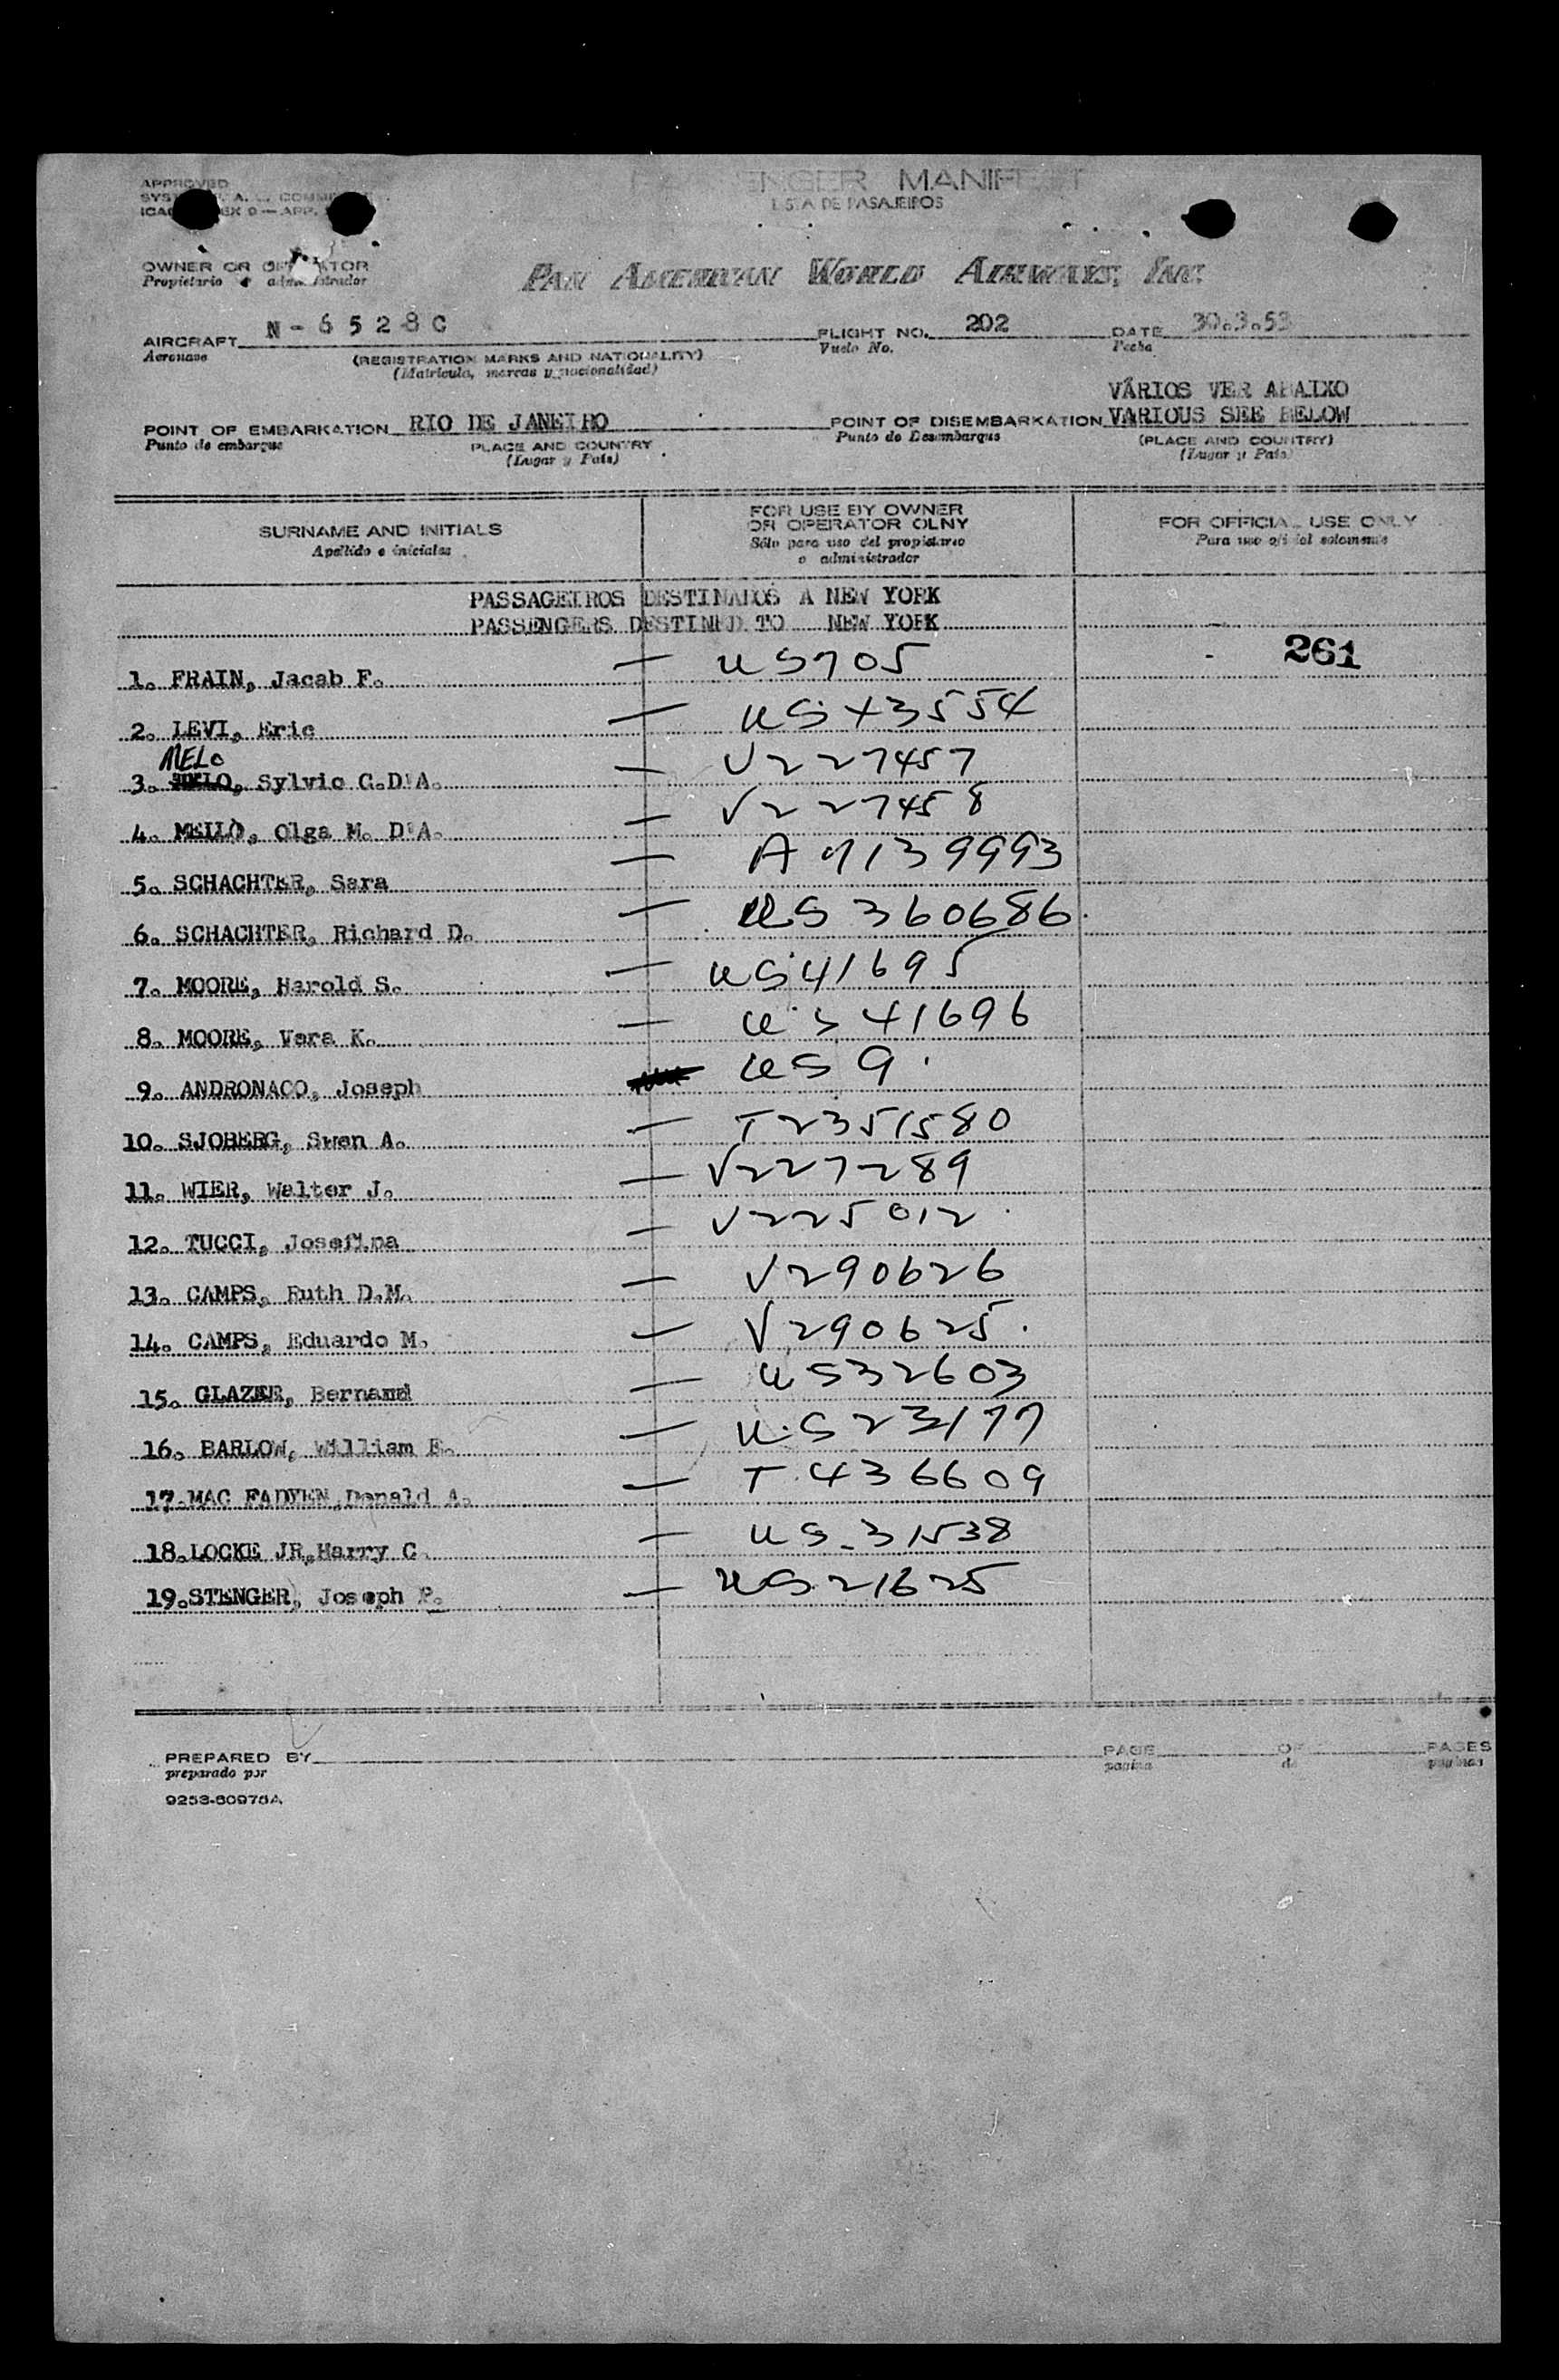 APPROVED
ICAO EX 9 — APP.
PASSENGER MANIFEST
LISTA DE PASAJEIROS
OWNER OR OPERATOR
Propietario o administrador
PAN AMERICAN WORLD AIRWAYS, INC.
AIRCRAFT N-6528C FLIGHT NO. 202 DATE 30.3.53
Aeronave (REGISTRATION MARKS AND NATIONALITY) Vuelo No. Fecha
(Matricula, marcas y nacionalidad)
VÁRIOS VER ABAIXO
POINT OF EMBARKATION RIO DE JANEIRO POINT OF DISEMBARKATION VARIOUS SEE BELOW
Punto de embarque PLACE AND COUNTRY Punto de Desembarque (PLACE AND COUNTRY)
(Lugar y País) (Lugar y País)
SURNAME AND INITIALS
Apellido e iniciales
FOR USE BY OWNER
OR OPERATOR OLNY
Sólo para uso del propietario
o administrador
FOR OFFICIAL USE ONLY
Para uso oficial solamente
PASSAGEIROS DESTINADOS A NEW YORK
PASSENGERS DESTINED TO NEW YORK
261
1. FRAIN, Jacab F. — US705
2. LEVI, Eric — US
MELO
3. Sylvio C.D'A. — V227457
4. MELLO, Olga M. D'A. — V227458
5. SCHACHTER, Sara —
6. SCHACHTER, Richard D. — US 360686
7. MOORE, Harold S. — US41695
8. MOORE, Vera K. — US 41696
9. ANDRONACO, Joseph US 9
10. SJOBERG, Swen A. — T2351580
11. WIER, Walter J. — V227289
12. TUCCI, Josefina — V225012
13. CAMPS, Ruth D.M. — V290626
14. CAMPS, Eduardo M. — V290625
15. GLAZER, Bernard — US32603
16. BARLOW, William E. — US23177
17.MAC FADYEN,Donald A. — T436609
18.LOCKE JR,Harry C. — US-31538
19.STENGER, Joseph P. — US21625
PREPARED BY PAGE OF PAGES
preparado por pagina de paginas
9253-60975A